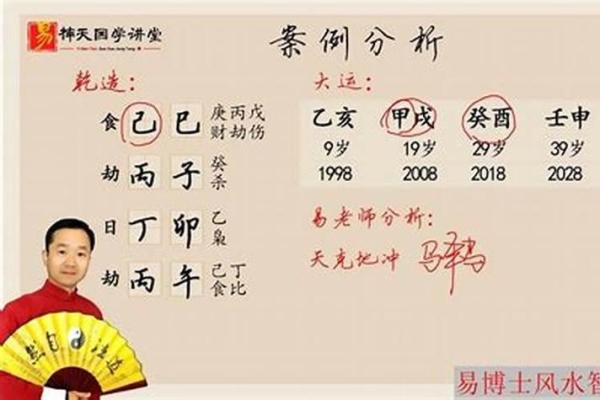 易 掸天国学讲堂
案例分析
乾造：
食 己 巳 庚丙戊
财劫伤
劫 丙 子 癸
杀
日 丁 卯 乙
枭
劫 丙 午 己丁
食比
大运：
乙亥 甲戌 癸酉 壬申
9岁 19岁 29岁 39岁
1998 2008 2018 2028
易老师分析：
天克地冲
道法自然
易博士风水智